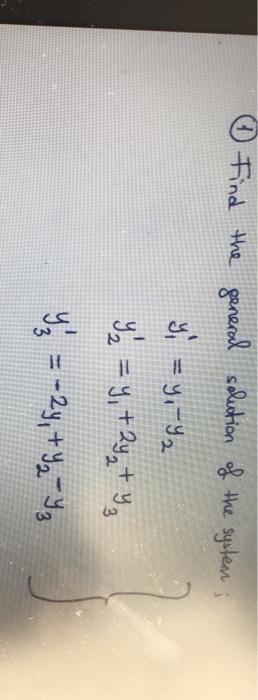 ① Find the general solution of the system;
y₁' = y₁ - y₂
y₂' = y₁ + 2y₂ + y₃
y₃' = -2y₁ + y₂ - y₃